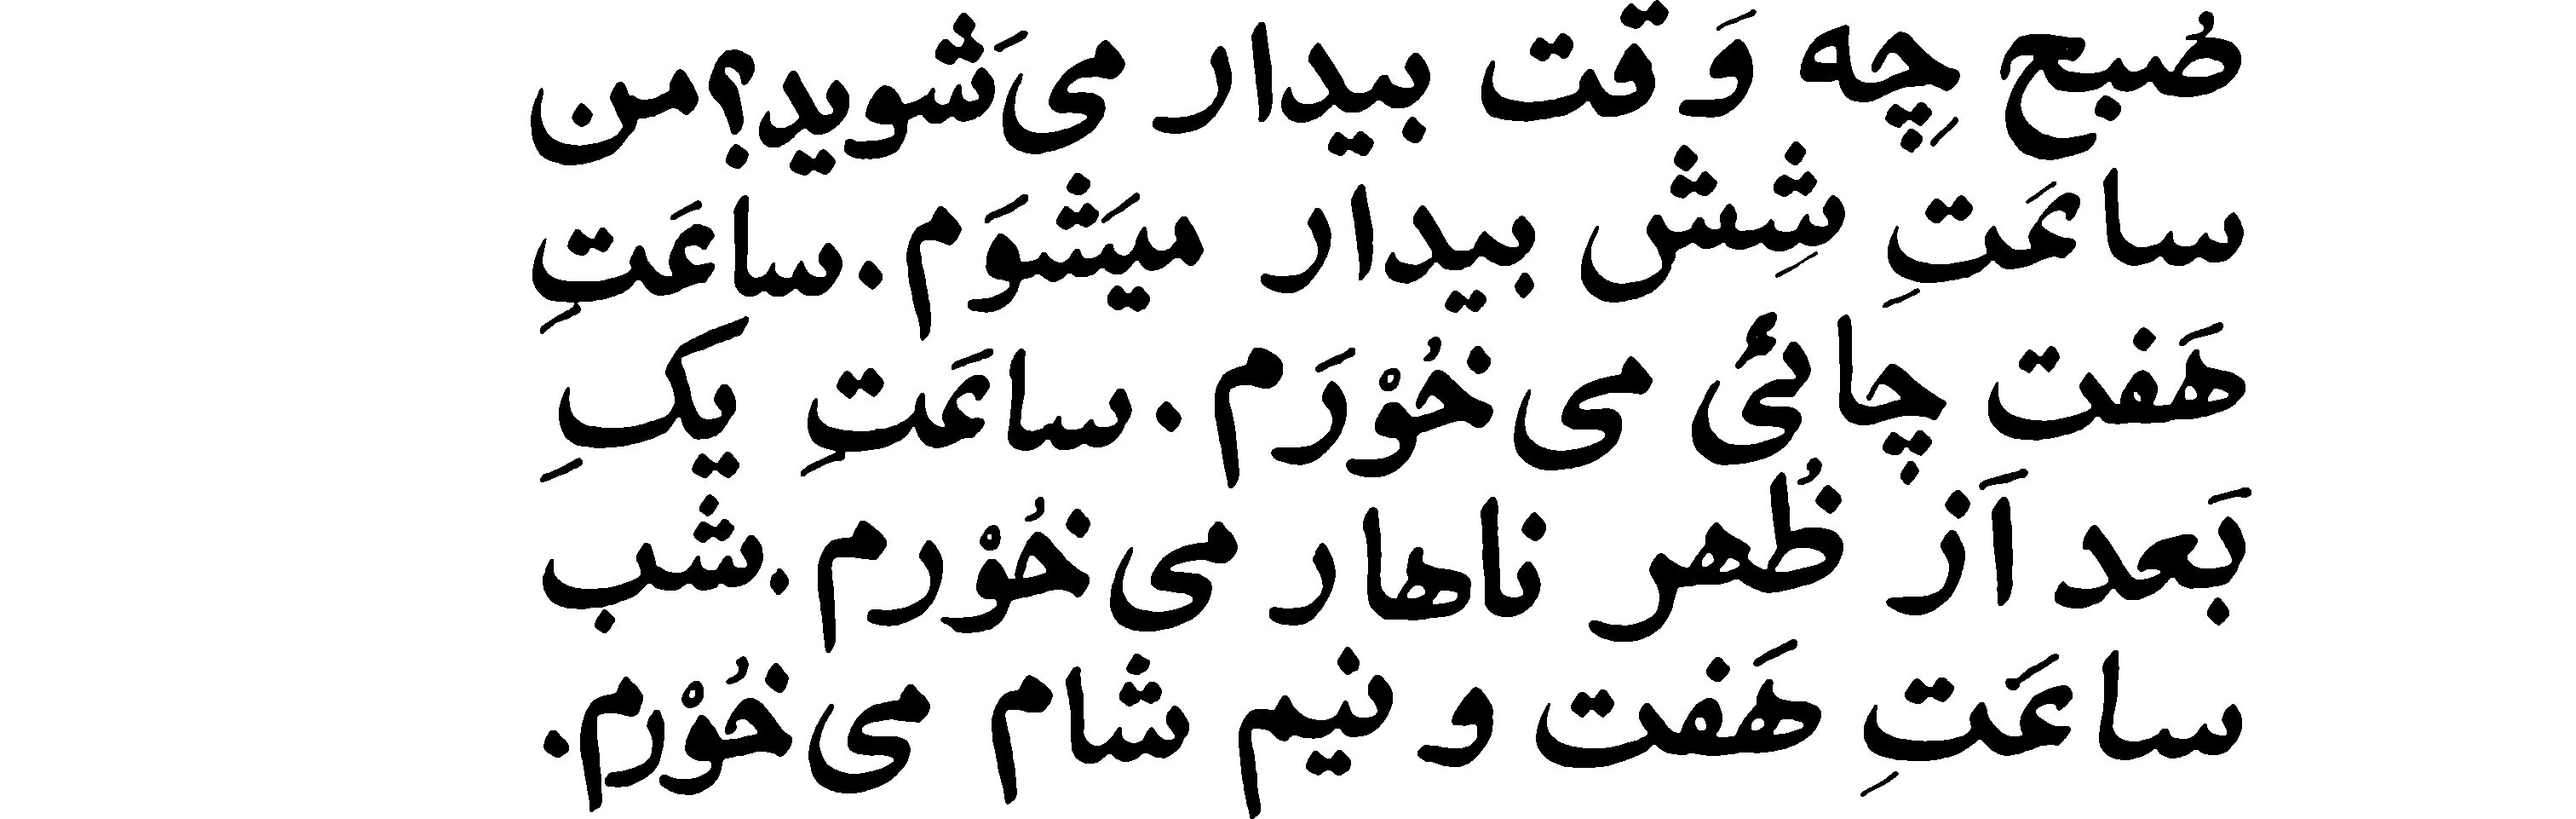 صُبح چِه وَقت بیدار می‌شَوید؟ من
ساعَتِ شِش بیدار میشَوَم. ساعَتِ
هَفت چائی می‌خُوْرَم. ساعَتِ یکِ
بَعد اَز ظُهر ناهار می‌خُوْرم. شب
ساعَتِ هَفت و نیم شام می‌خُوْرم.